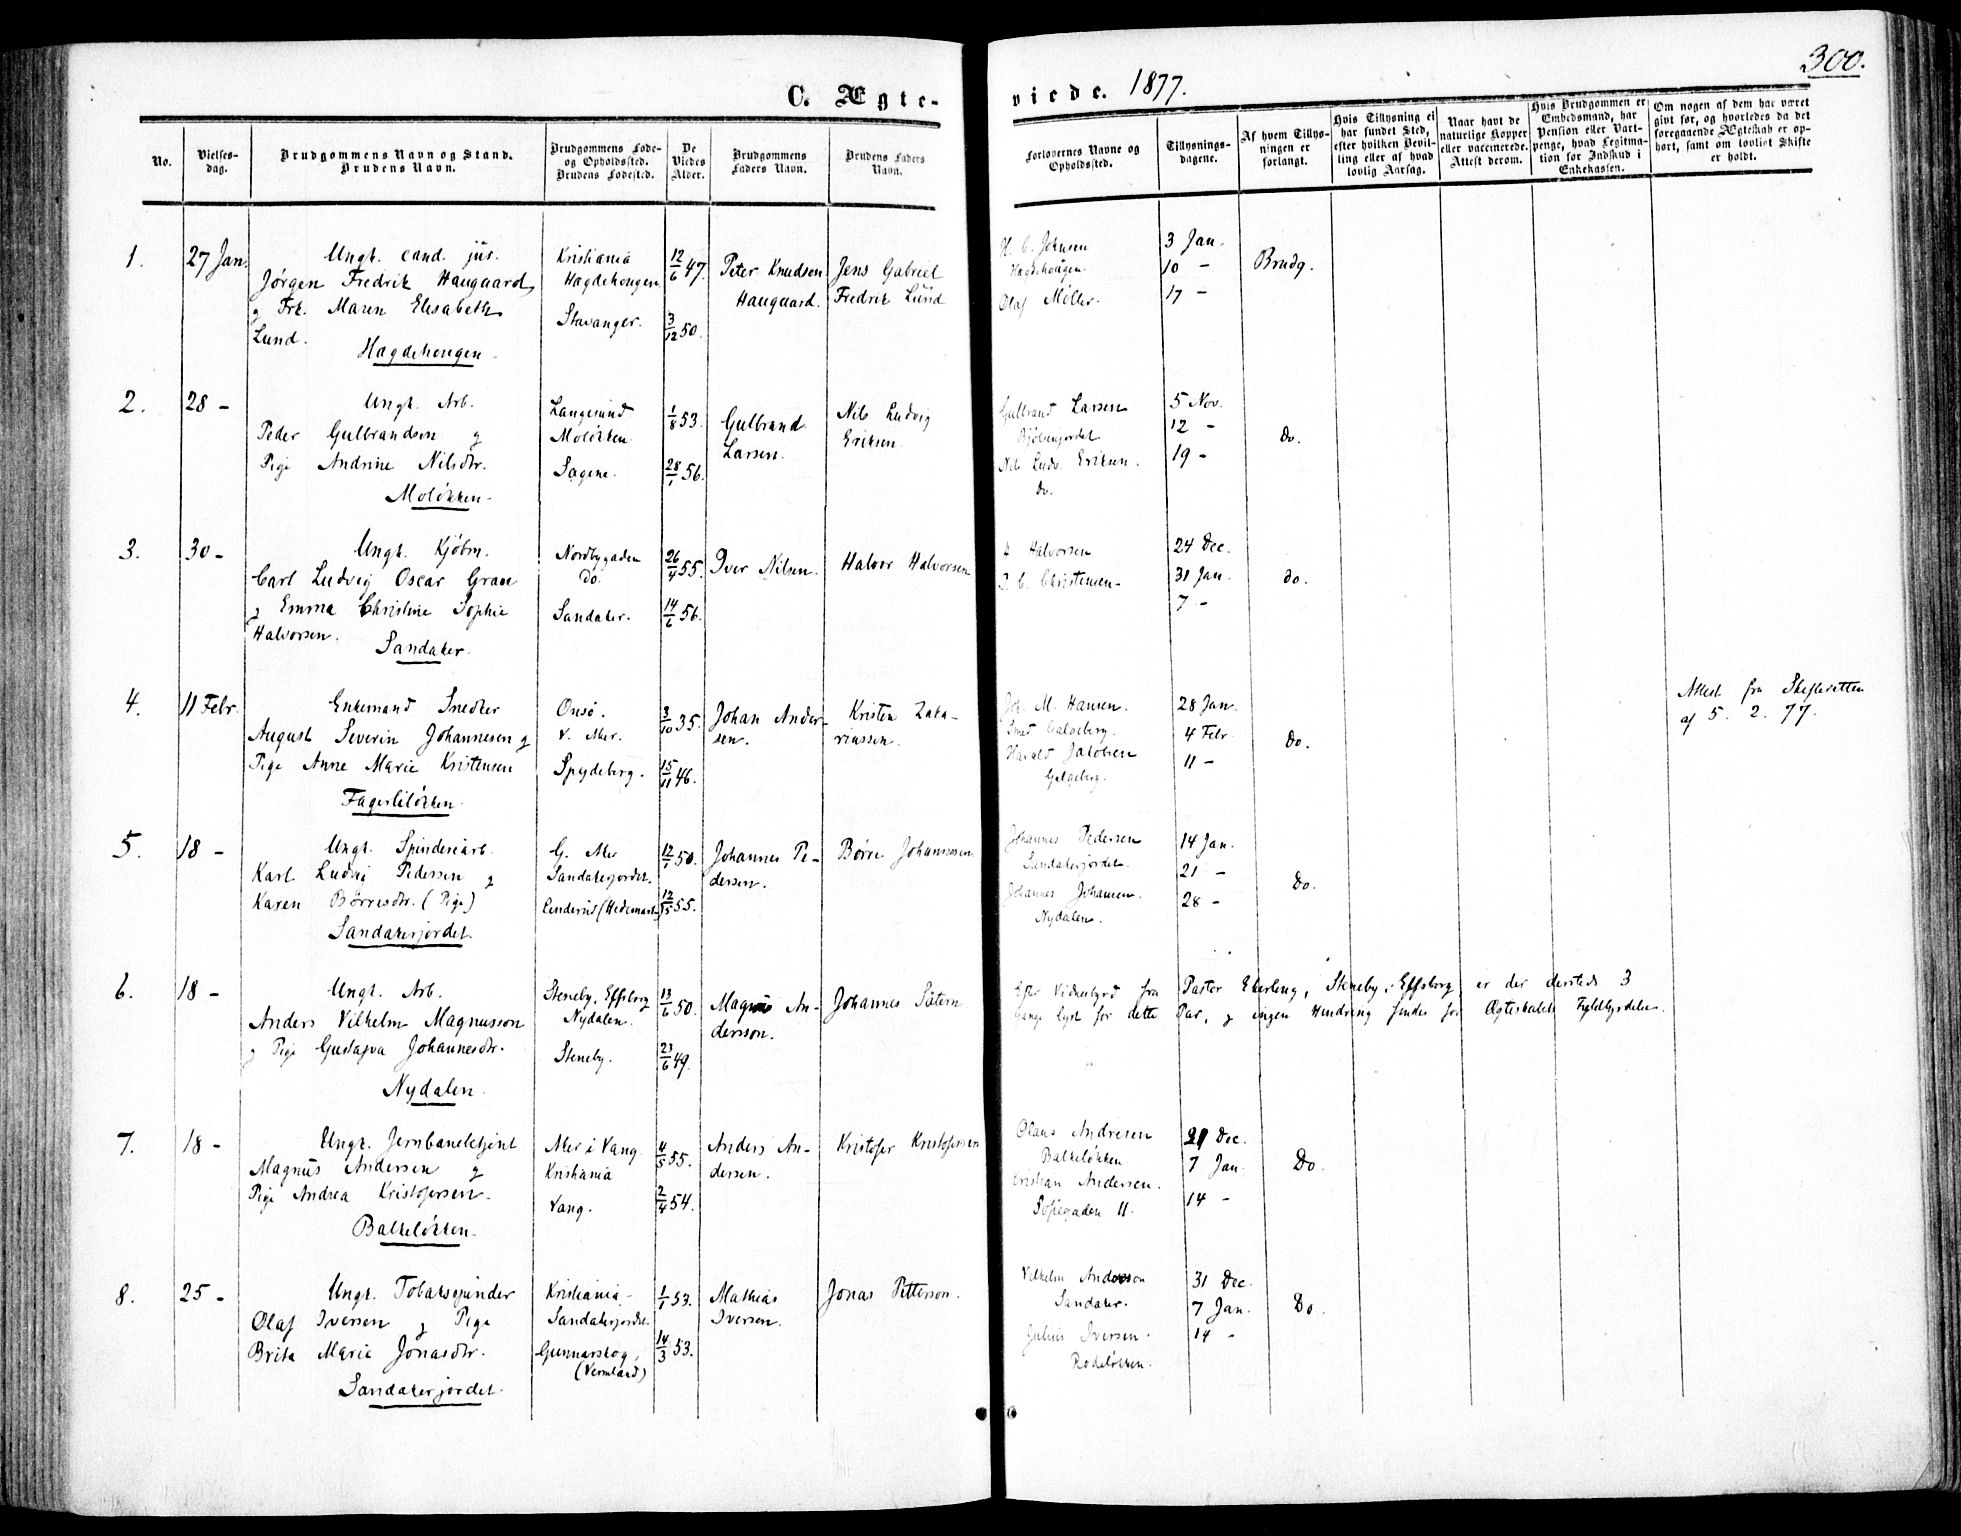 300.
C. Ægte-
viede. 1877.
No.
Vielses-
dag.
Brudgommens Navn og Stand.
Brudens Navn.
Brudgommens Føde-
og Opholdssted.
Brudens Fødested.
De
Viedes
Alder.
Brudgommens
Faders Navn.
Brudens Faders
Navn.
Forlovernes Navne og
Opholdssted.
Tillysnings-
dagene.
Af hvem Tillys-
ningen er
forlangt.
Hvis Tillysning ei
har fundet Sted,
efter hvilken Bevil-
ling eller af hvad
lovlig Aarsag.
Naar havt de
naturlige Kopper
eller vaccinerede.
Attest derom.
Hvis Brudgommen er
Embedsmand, har
Pension eller Vart-
penge, hvad Legitima-
tion for Indskud i
Enkekassen.
Om nogen af dem har været
gift før, og hvorledes da det
foregaaende Ægteskab er op-
hørt, samt om lovligt Skifte
er holdt.
1.
27 Jan.
Ungk. cand. jur.
Jørgen Fredrik Haugaard
og Frk. Maren Elisabeth
Lund.
Hægdehougen.
Kristiania
Hægdehougen
Stavanger.
12/6 47.
3/12 50.
Peter Knudsen
Haugaard.
Jens Gabriel
Fredrik Lund
H. C. Johnsen
Hægdehougen.
Olaf Møller.
3 Jan.
10 -
17 -
Brudg.
2.
28 -
Ungk. Arb.
Peder Gulbrandsen og
Pige Andrine Nilsdtr.
Moløkken.
Langesund
Moløkken
Sagene.
1/8 53.
28/1 56.
Gulbrand
Larsen.
Nils Ludvig
Eriksen
Gulbrand Larsen
Nils Ludv. Eriksen.
do.
5 Nov.
12 -
19 -
do.
3.
30 -
Ungk. Kjøbm.
Carl Ludvig Oscar Gran
og Emma Christine Sophie
Halvorsen.
Sandaker.
Nordbygaden
do.
Sandaker.
26/4 55.
14/6 56.
Iver Nilsen.
Halvor Halvorsen
Halvorsen
C. Christensen
24 Dec.
31 Jan.
7 -
do.
4.
11 Febr.
Enkemand Snedker
August Severin Johannesen og
Pige Anne Marie Kristensen
Fagerliløkken.
Onsø.
V. Aker.
Spydeberg.
3/10 35.
15/11 46.
Johan Ander-
sen.
Kristen Zaka-
riassen.
Joh. M. Hansen.
Smed Galgeberg.
Harald Jakobsen
Galgeberg.
28 Jan.
4 Febr.
11 -
Do.
Attest fra Skifteretten
af 5. 2. 77.
5.
18 -
Ungk. Spinderiarb.
Karl Ludvig Pedersen og
Karen Børresdtr. (Pige)
Sandakerjordet.
G. Aker
Sandakerjordet.
12/1 50.
55.
Johannes Pe-
dersen.
Børre Johannesen
Johannes Pedersen
Sandakerjordet.
Johannes Johansen.
Nydalen.
14 Jan.
21 -
28 -
Do.
6.
18 -
Ungk. Arb.
Anders Vilhelm Magnusson
og Pige Gustafva Johannesdtr.
Nydalen.
Steneby, Elfsborg
Nydalen.
Steneby.
13/6 50.
23/6 49.
Magnus An-
dersson.
Johannes
Efter Vidnesbyrd fra Pastor Ekerling, Steneby, Elfsborg, er der dersteds 3
Gange lyst for dette Par, og ingen Hindring findes for Ægteskabets Fuldbyrdelse.
7.
18 -
Ungk. Jernbanebetjent
Magnus Andersen og
Pige Andrea Kristofersen.
Balkeløkken.
Aker i Vang
Kristiania
Vang.
4/5 55.
2/4 54.
Anders An-
dersen.
Kristofer Kristofersen
Olaus Andresen
Balkeløkken
Kristian Andersen.
Sofiegaden 11.
21 Dec.
7 Jan.
14 -
Do.
8.
25 -
Ungk. Tobakspinder
Olaf Iversen og Pige
Brita Maria Jonasdtr.
Sandakerjordet.
Kristiania
Sandakerjordet
Gunnarskog,
(Vermland)
1/1 53.
14/3 53.
Mathias
Iversen.
Jonas Petterson.
Vilhelm Andersson
Sandaker.
Julius Iversen.
Rodeløkken.
31 Dec.
7 Jan.
14 -
Do.